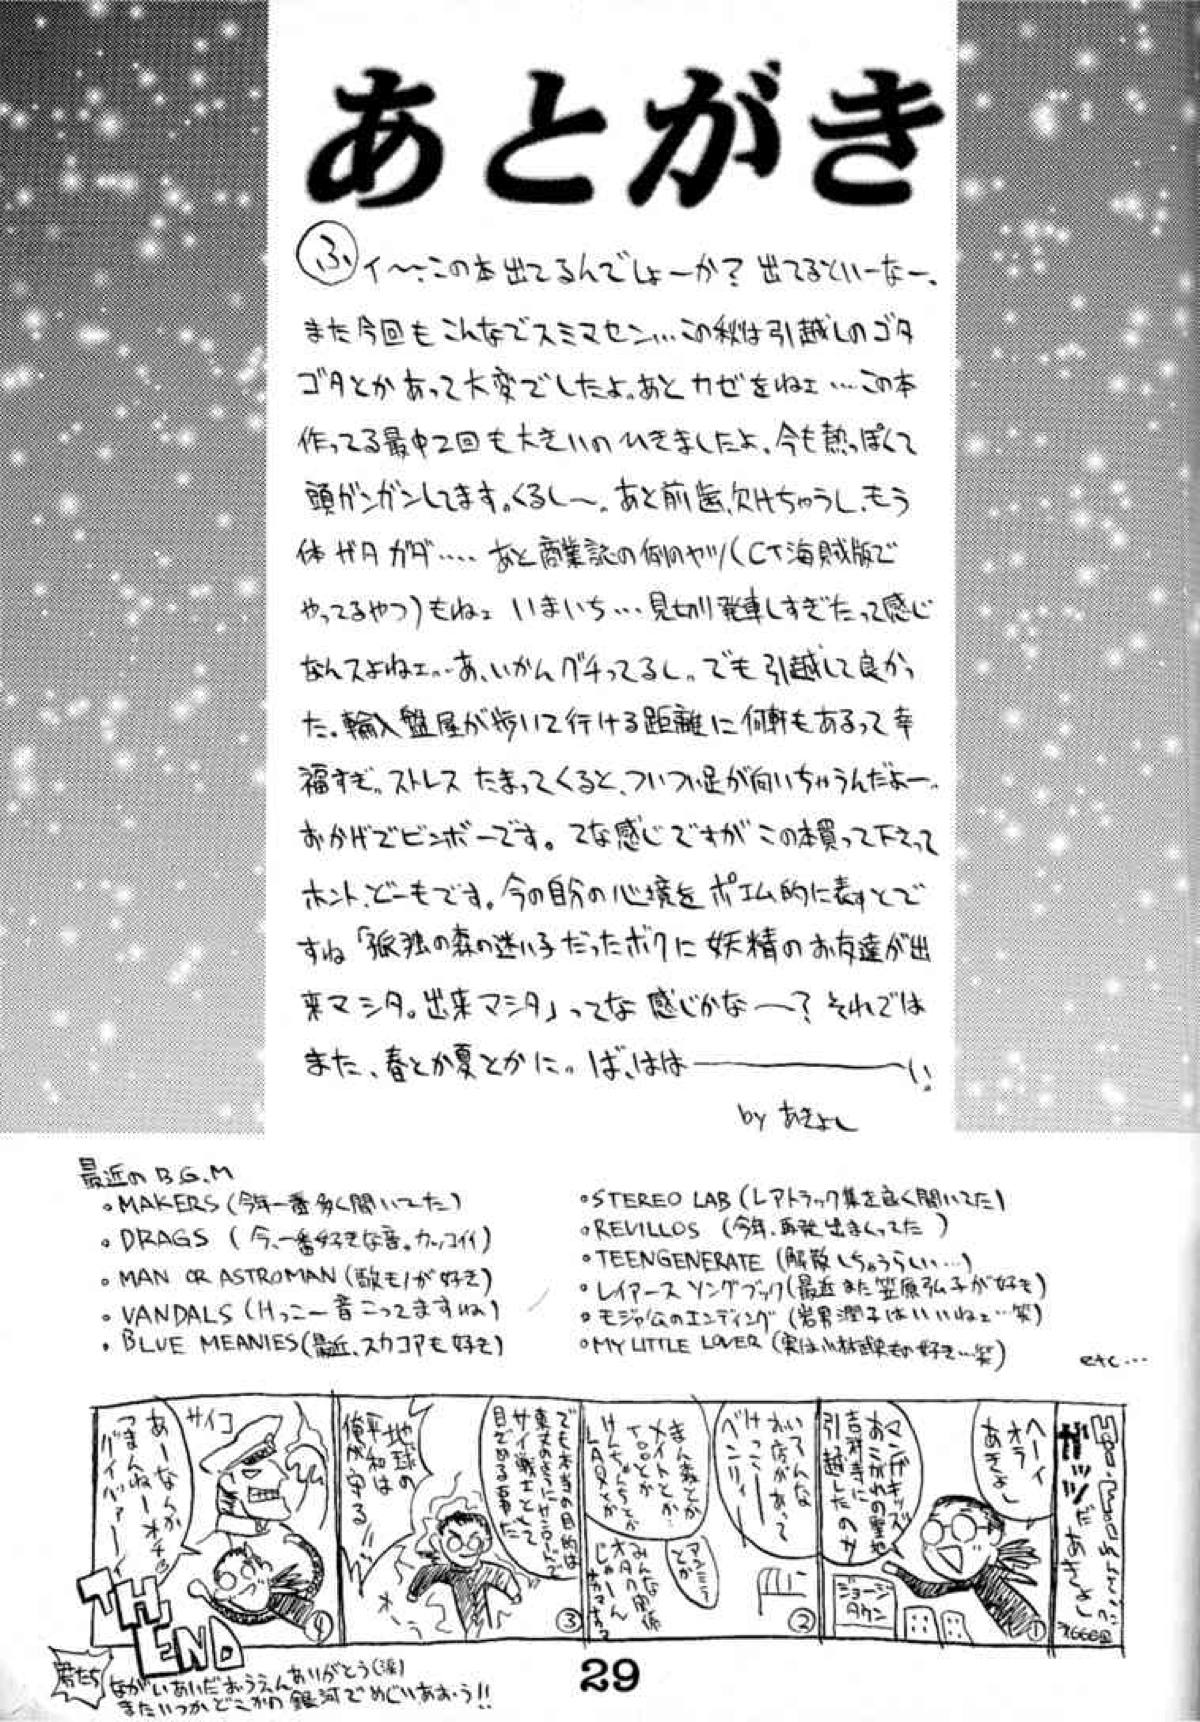 あとがき
ふィ〜、この本出てるんでしょーか？出てるといーなー、
また今回もこんなでスミマセン…この秋は引越しのゴタ
ゴタとかあって大変でしたよ。あとカゼをねェ…この本
作ってる最中2回も大きいのひきましたよ、今も熱っぽくて
頭ガンガンしてます。くるし〜。あと前歯、欠けちゃうし、もう
体ガタガタ‥‥あと商業誌の例のヤツ(CT海賊版で
やってるやつ)もねェ いまいち…見切り発車しすぎたって感じ
なんスよねェ…あ、いかんグチってるし。でも引越して良かっ
た。輸入盤屋が歩いて行ける距離に何軒もあるって幸
福すぎ。ストレスたまってくると、ついつい足が向いちゃうんだよー。
おかげでビンボーです。てな感じですがこの本買って下さって
ホント、どーもです。今の自分の心境をポエム的に表すとで
すね「孤独の森の迷い子だったボクに妖精のお友達が出
来マシタ。出来マシタ」ってな感じかな〜？それでは
また、春とか夏とかに。ば、はは――――い。
by あきよし
最近のB.G.M
・MAKERS(今年一番多く聞いてた)
・DRAGS(今、一番好きな音。カッコイイ)
・MAN OR ASTROMAN(歌モノが好き)
・VANDALS(けっこー音こってますね)
・BLUE MEANIES(最近、スカコアも好き)
・STEREO LAB(レアトラック集を良く聞いてた)
・REVILLOS(今年、再発出まくってた)
・TEENGENERATE(解散しちゃうらしい…)
・レイアース ソングブック(最近また笠原弘子が好き)
・モジャ公のエンディング(岩男潤子はいいねェ…笑)
・MY LITTLE LOVER(実は小林武史もの好き…笑)
etc…
ガッツだあきよし
ヘーイ
オライ
あきよし
マンガキッズ
あこがれの聖地
吉祥寺に
引越したのか
ジョージ
タウン
①
いろんな
お店があって
けっこー
ベンリィー
まんが家とか
メイトとか…
LAOXとか
みんなオタク関係
じゃーん
②
でも本当の目的は
サイ戦士として
目ざめる事だ
地球の
平和は
俺が守る
③
サイコ
あーなんか
つまんねーオチっ
バイバァーイ
④
THE END
君たち
ながいあいだおうえんありがとう(涙)
またいつかどこかの銀河でめぐりあおう!!
29